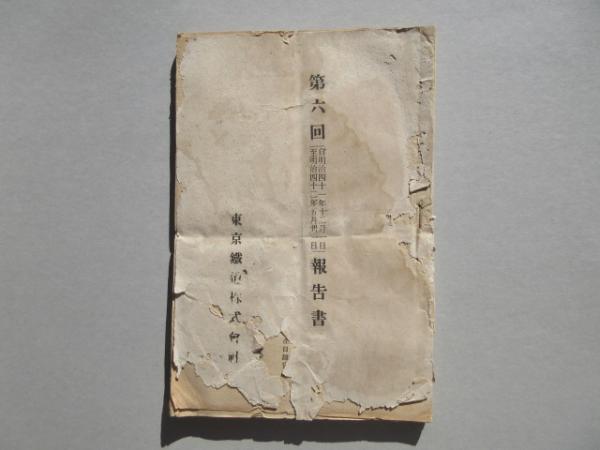 第六回
自明治四十一年十二月一日
至明治四十二年五月卅一日
報告書
東京鐵道株式會社